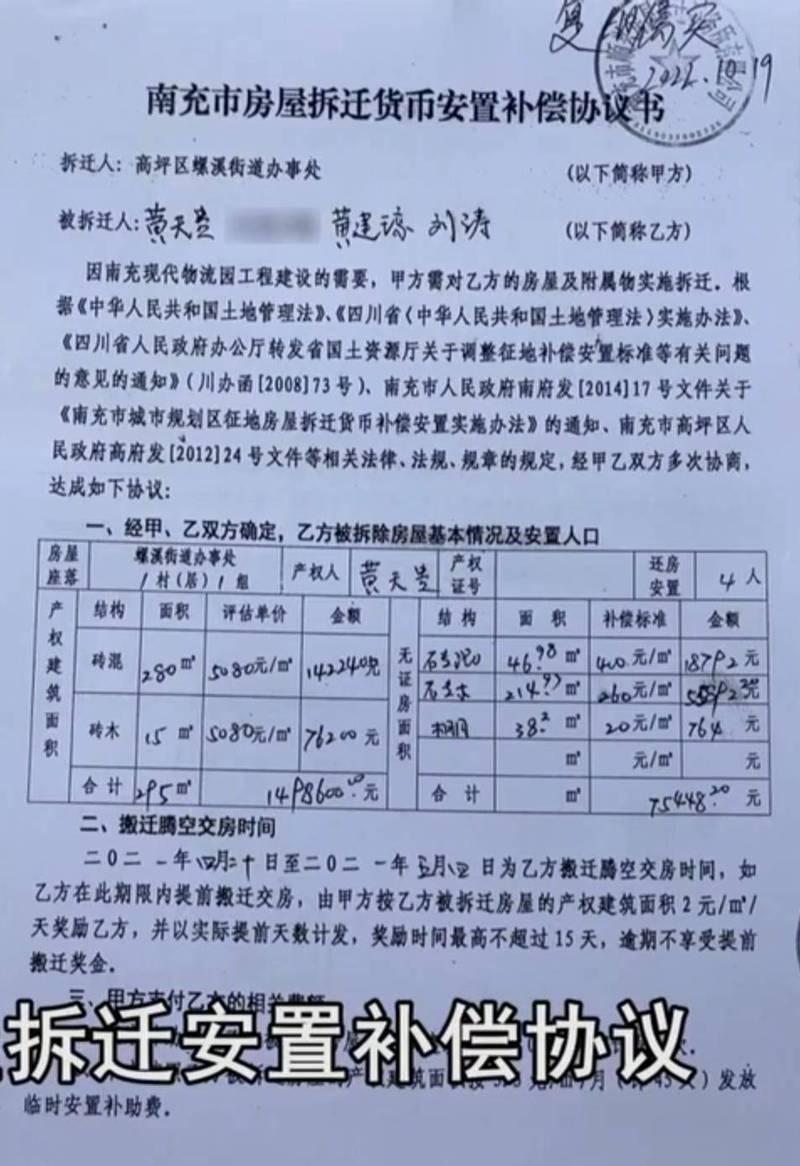 复印属实
2021.10.19
南充市房屋拆迁货币安置补偿协议书
拆迁人：高坪区螺溪街道办事处 （以下简称甲方）
被拆迁人：黄天贵 黄建琼 刘涛 （以下简称乙方）
因南充现代物流园工程建设的需要，甲方需对乙方的房屋及附属物实施拆迁．根
据《中华人民共和国土地管理法》、《四川省〈中华人民共和国土地管理法〉实施办法》、
《四川省人民政府办公厅转发省国土资源厅关于调整征地补偿安置标准等有关问题
的意见的通知》（川办函[2008]73号）、南充市人民政府南府发[2014]17号文件关于
《南充市城市规划区征地房屋拆迁货币补偿安置实施办法》的通知、南充市高坪区人
民政府高府发[2012]24号文件等相关法律、法规、规章的规定，经甲乙双方多次协商，
达成如下协议：
一、经甲、乙双方确定，乙方被拆除房屋基本情况及安置人口
房屋座落 螺溪街道办事处 1村（居）1组 产权人 黄天贵 产权证号 还房安置 4人
产权建筑面积 结构 面积 评估单价 金额 无证房面积 结构 面积 补偿标准 金额
砖混 280㎡ 5080元/㎡ 1422400元 46.98㎡ 400元/㎡ 18792元
214.97㎡ 260元/㎡
砖木 15㎡ 5080元/㎡ 76200元 38.2㎡ 20元/㎡ 764元
㎡ 元/㎡ 元
合计 295㎡ 1498600.00元 合计 ㎡ 75448.20元
二、搬迁腾空交房时间
二〇二一年四月二十日至二〇二一年五月四日为乙方搬迁腾空交房时间，如
乙方在此期限内提前搬迁交房，由甲方按乙方被拆迁房屋的产权建筑面积2元/㎡/
天奖励乙方，并以实际提前天数计发，奖励时间最高不超过15天，逾期不享受提前
搬迁奖金．
三、甲方支付乙方的相关费额
拆迁安置补偿协议
发放
临时安置补助费．